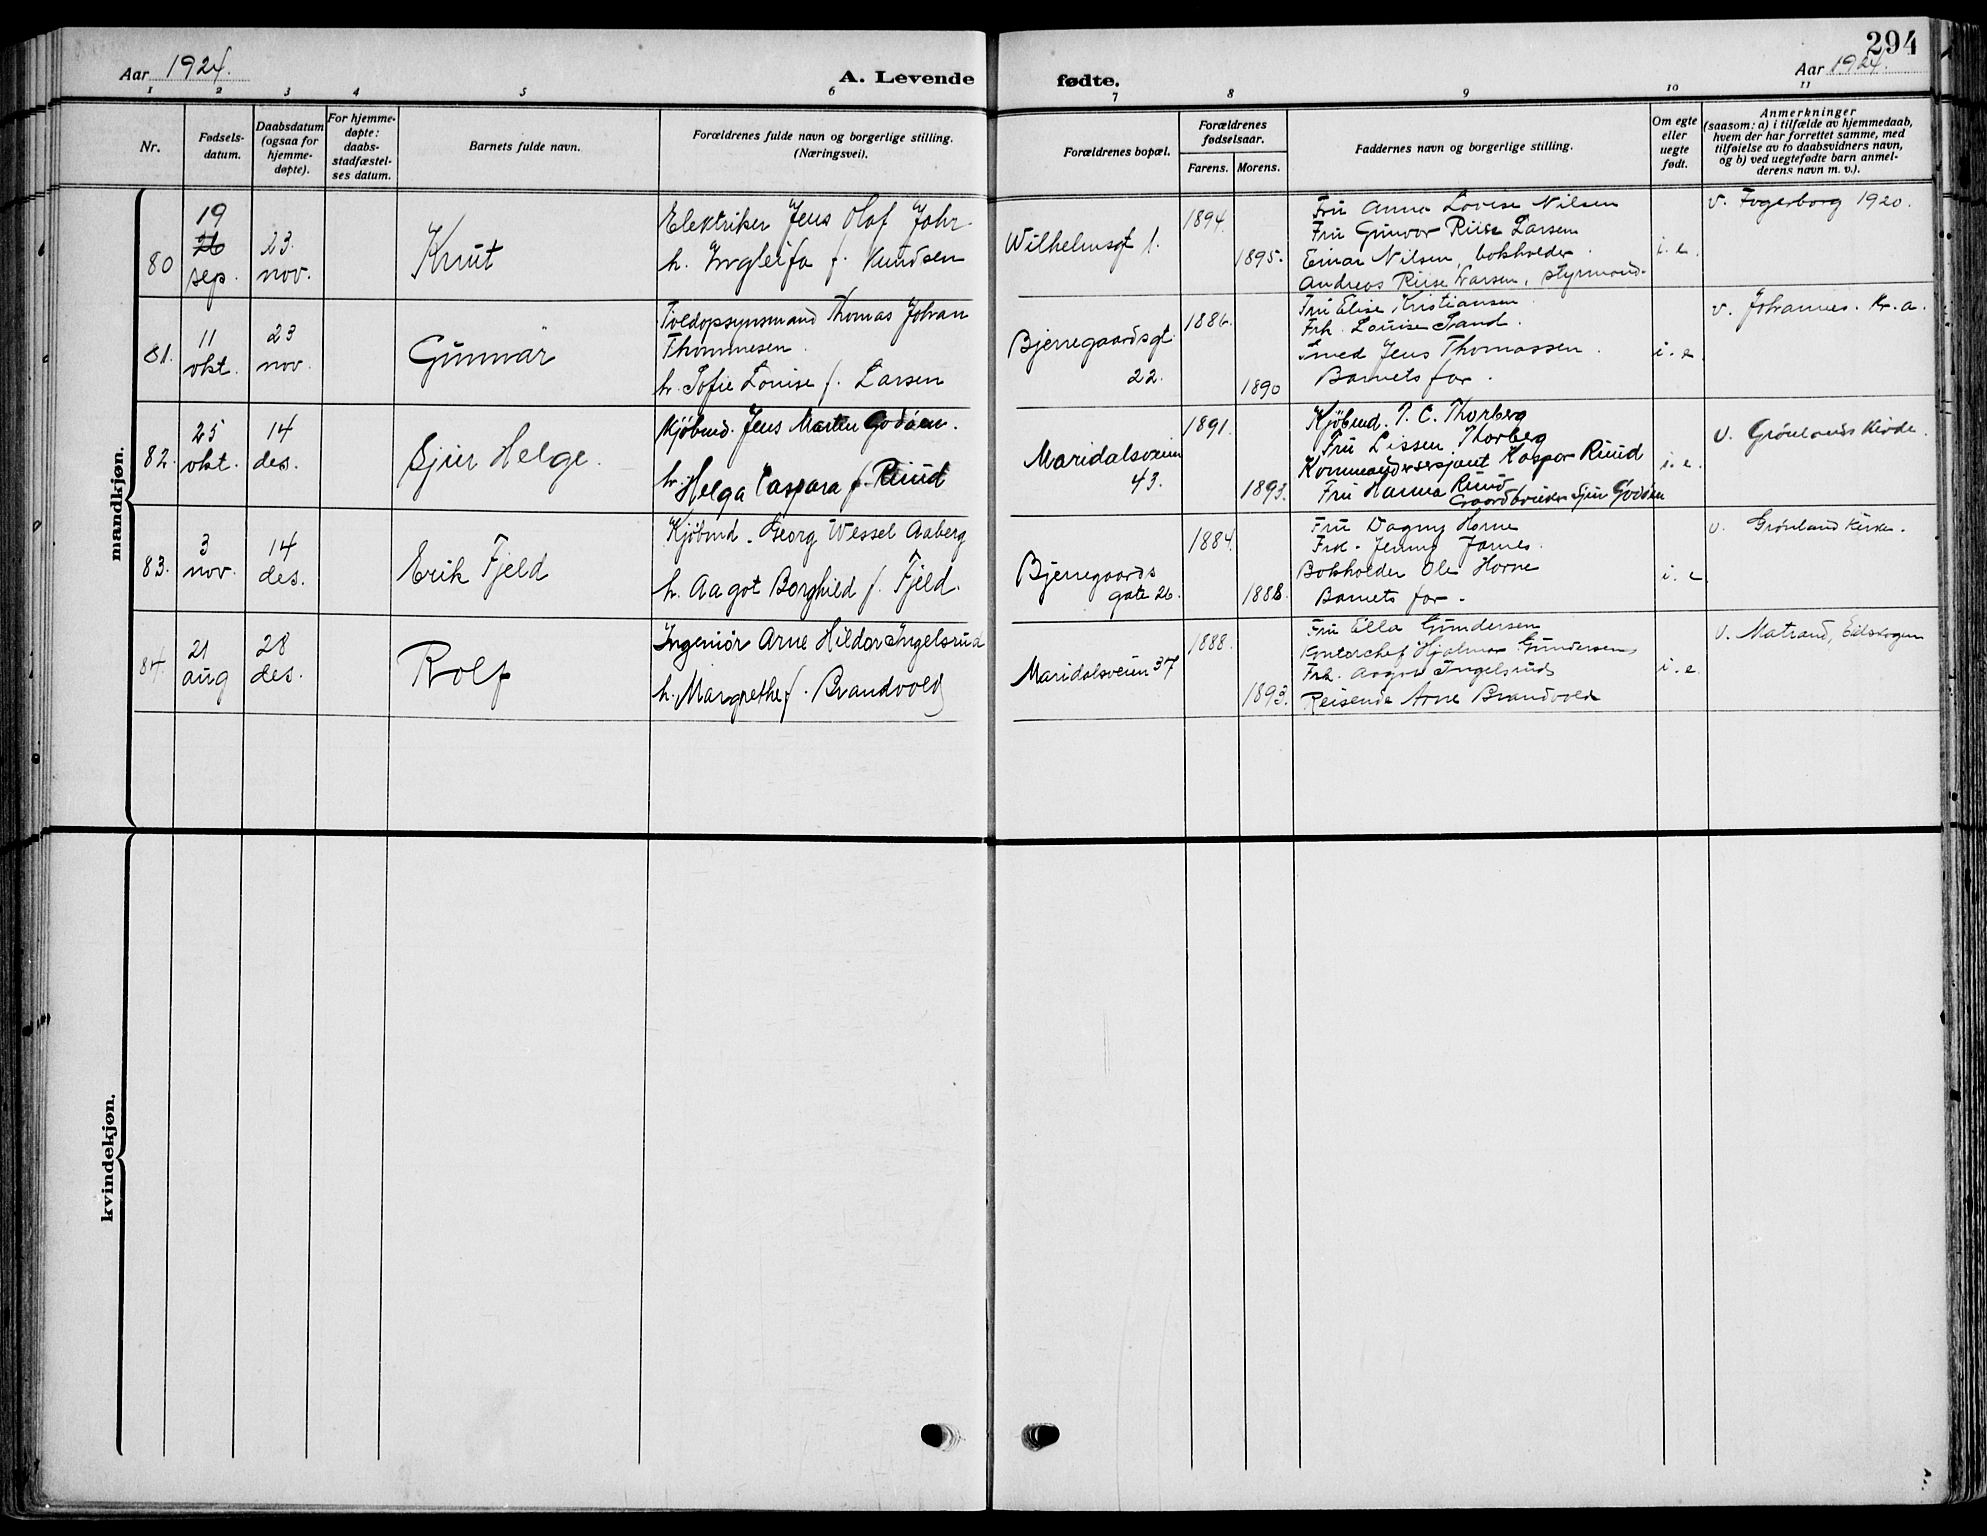 294
Aar 1924.
A. Levende
fødte.
Aar 1924.
1 2 3 4 5 6 7 8 9 10 11
Nr.
Fødsels-
datum.
Daabsdatum
(ogsaa for
hjemme-
døpte).
For hjemme-
døpte:
daabs-
stadfæstel-
ses datum.
Barnets fulde navn.
Forældrenes fulde navn og borgerlige stilling.
(Næringsvei).
Forældrenes bopæl.
Forældrenes
fødselsaar.
Farens. Morens.
Faddernes navn og borgerlige stilling.
Om egte
eller
uegte
født.
Anmerkninger
(saasom: a) i tilfælde av hjemmedaab,
hvem der har forrettet samme, med
tilføielse av to daabsvidners navn,
og b) ved uegtefødte barn anmel-
derens navn m. v.).
mandkjøn.
80
19
26
sep.
23
nov.
Knut
Elektriker Jens Olaf
h. f. Knudsen
Wilhelmsgt 1.
1894.
1895.
Fru Anna Lovise Nilsen
Fru Gunvor Riise Larsen
Einar Nilsen, bokholder
Andreas Riise Larsen, styrmand.
i. e.
v. Fagerborg 1920.
81.
11
okt.
23
nov.
Gunnar
Toldopsynsmand Thomas Johan
Thommesen.
h. Sofie Louise f. Larsen
Bjerregaardsgt.
22.
1886.
1890
Fru Elise Kristiansen
Frk. Louise Sand.
Smed Jens Thomassen.
Barnets far.
i. e
v. Johannes. Kr. a.
82.
25
okt.
14
des.
Sjur Helge.
Kjøbmd. Jens Martin Godøen.
h. Helga Caspara f. Ruud
Maridalsveien
43.
1891.
1893.
Kjøbmd. T. C. Thorberg
Fru Lissen Thorberg
Kommandersersjant Kaspar Ruud
Fru Hanna Ruud
Gaardbruker Sjur Godøen
i. e.
v. Grønlands Kirke.
83.
3
nov.
14
des.
Erik Fjeld
Kjøbmd. Georg Wessel Aaberg
h. Aagot Borghild f. Fjeld.
Bjerregaards
gate 26.
1884.
1888.
Fru Dagny Horne
Frk. Jenny
Bokholder Ole Horne
Barnets far.
i. e
v. Grønland kirke.
84.
21
aug
28
des.
Rolf
Ingeniør Arne Hildor Ingelsrud
h. Margrethe f. Brandvold
Maridalsveien 37
1888.
1893.
Fru Ella Gundersen
Kontorchef Hjalmar Gundersen
Frk. Aagot Ingelsrud
Reisende Arne Brandvold
i. e.
v. Matrand, Eidskogen
kvindekjøn.